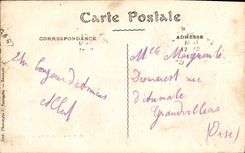 Carte Postale
CORRESPONDANCE
ADRESSE
Un bonjour d'Amiens
Mlle Marguerite
Demarest rue
d'Aumale
Grandvilliers
(Oise)